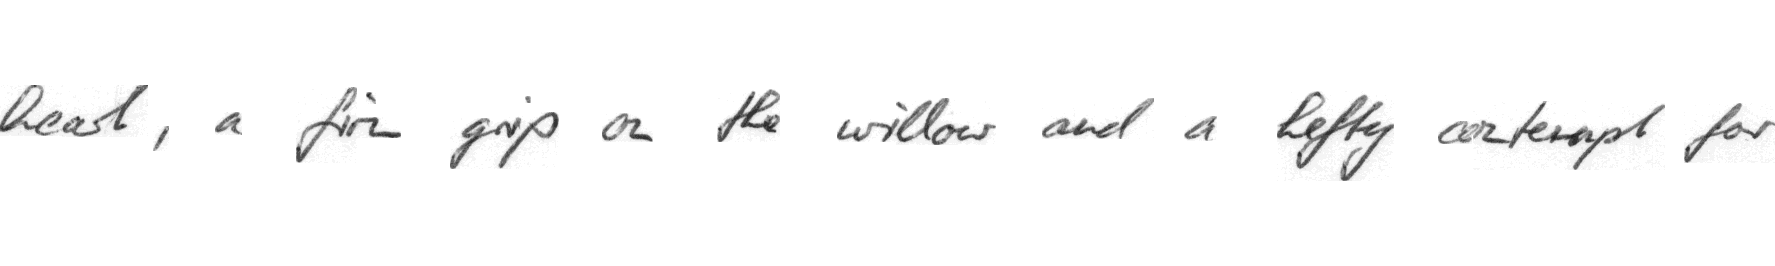 heart, a firm grip on the willow and a hefty contempt for